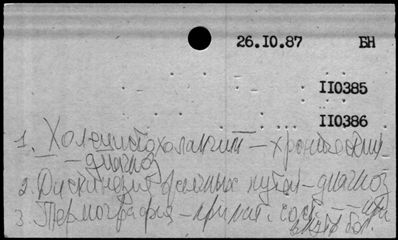 26.IO.87 БН
IIO385
IIO386
1. Холецистохолангит – хронический
– диагноз
2. Дискинезия желчных путей – диагноз
3. Термография – примен. – при